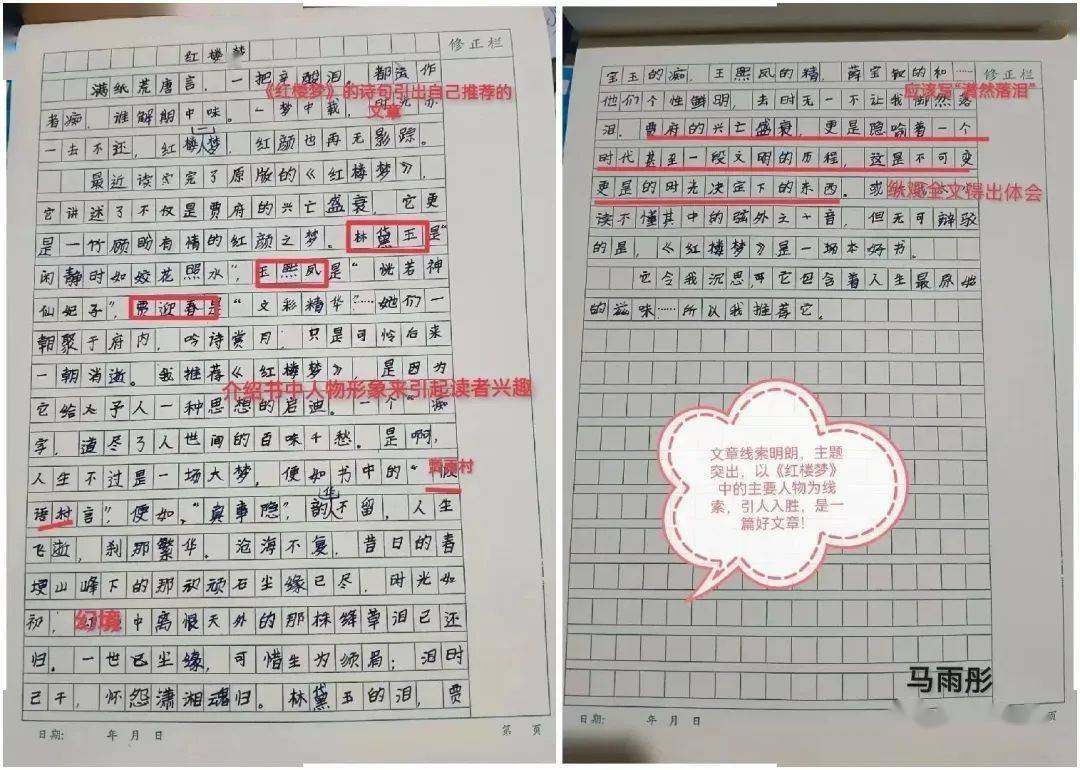 红楼梦
修正栏
满纸荒唐言，一把辛酸泪。都云作
《红楼梦》的诗句引出自己推荐的
文章
者痴，谁解期中味。一梦中载，
一去不还，红楼一人梦，红颜也再无影踪。
最近读完了原版的《红楼梦》，
它讲述了不仅是贾府的兴亡盛衰，它更
是一个顾盼有情的红颜之梦。林黛玉是“
闲静时如姣花照水”，王熙凤是“恍若神
仙妃子”，贾迎春是“文彩精华”……她们一
朝聚于府内，吟诗赏月，只是可怜后来
一朝消逝。我推荐《红楼梦》，是因为
介绍书中人物形象来引起读者兴趣
它给予人一种思想的启迪。一个“痴
字，道尽了人世间的百味千愁。是啊，
人生不过是一场大梦，便如书中的“假
贾雨村
语村言”，便如，“真事隐”，韵华不留，人生
飞逝，刹那繁华。沧海不复，昔日的春
埂山峰下的那块顽石尘缘已尽，时光如
初，幻境中离恨天外的那株绛草泪已还
归。一世已尘缘，可惜生为须局；泪时
己干，怀怨潇湘魂归。林黛玉的泪，贾
日期： 年 月 日
第 页
宝玉的痴，王熙凤的精，薛宝钗的和……
修正栏
他们个性鲜明，去时无一不让我潸然落
应该写“潸然落泪”
泪。贾府的兴亡盛衰，更是隐喻着一个
时代甚至一段文明的历程，这是不可变
更是的时光决定下的东西。或
纵观全文得出体会
读不懂其中的弦外之音，但无可辩驳
的是，《红楼梦》是一场本好书。
它令我沉思，它包含着人生最原始
的滋味……所以我推荐它。
文章线索明朗，主题
突出，以《红楼梦》
中的主要人物为线
索，引人入胜，是一
篇好文章！
马雨彤
日期： 年 月 日
页